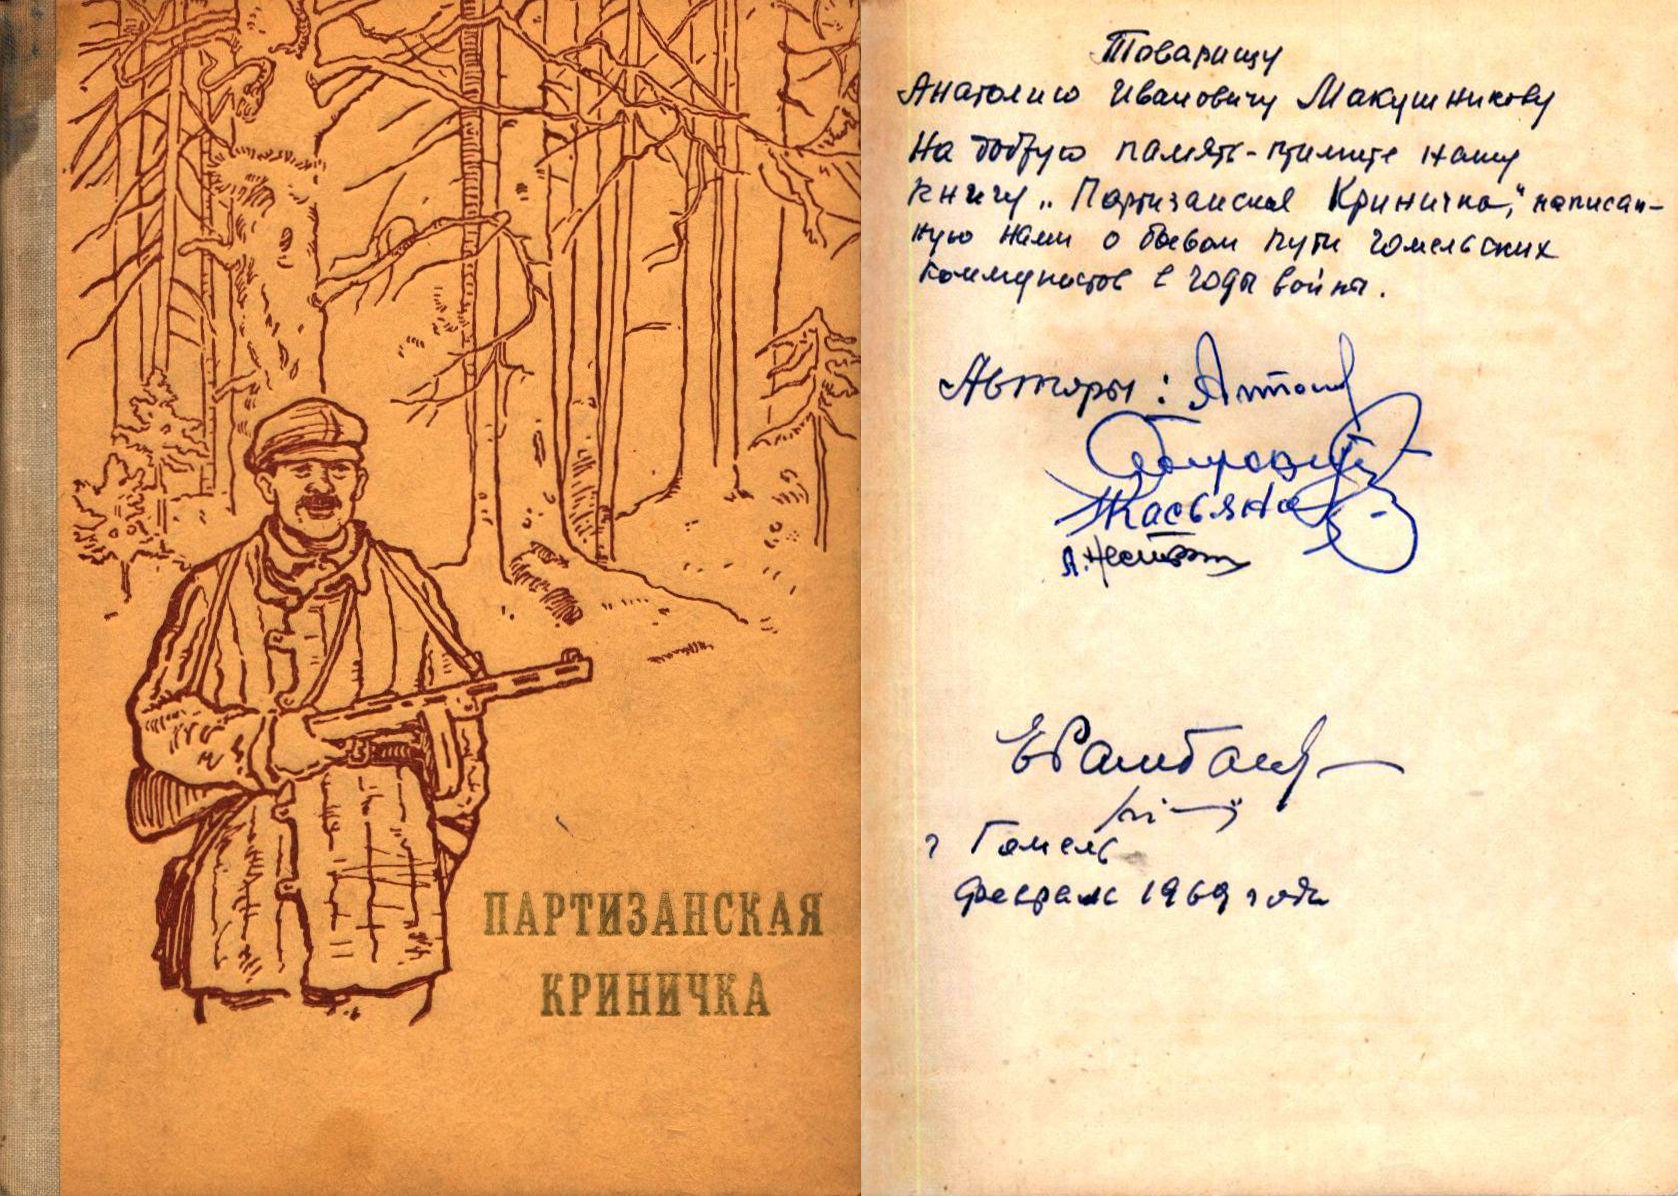 ПАРТИЗАНСКАЯ
КРИНИЧКА
Товарищу
Анатолию Ивановичу Макушникову
На добрую память - примите нашу
книгу „Партизанская Криничка," написан-
ную нами о боевом пути гомельских
коммунистов в годы войны.
Авторы:
Касьяно
г Гомель
февраль 1969 года